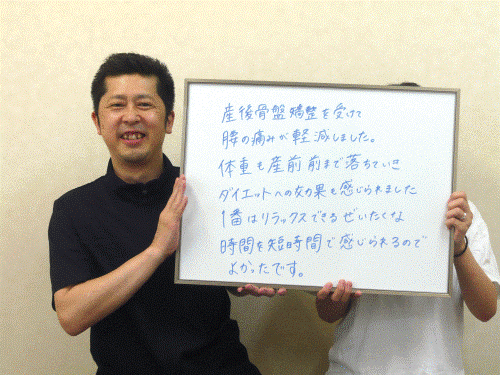 産後骨盤矯整を受けて
腰の痛みが軽減しました。
体重も産前前まで落ちていき
ダイエットへの効果も感じられました
1番はリラックスできるぜいたくな
時間を短時間で感じられるので
よかったです。